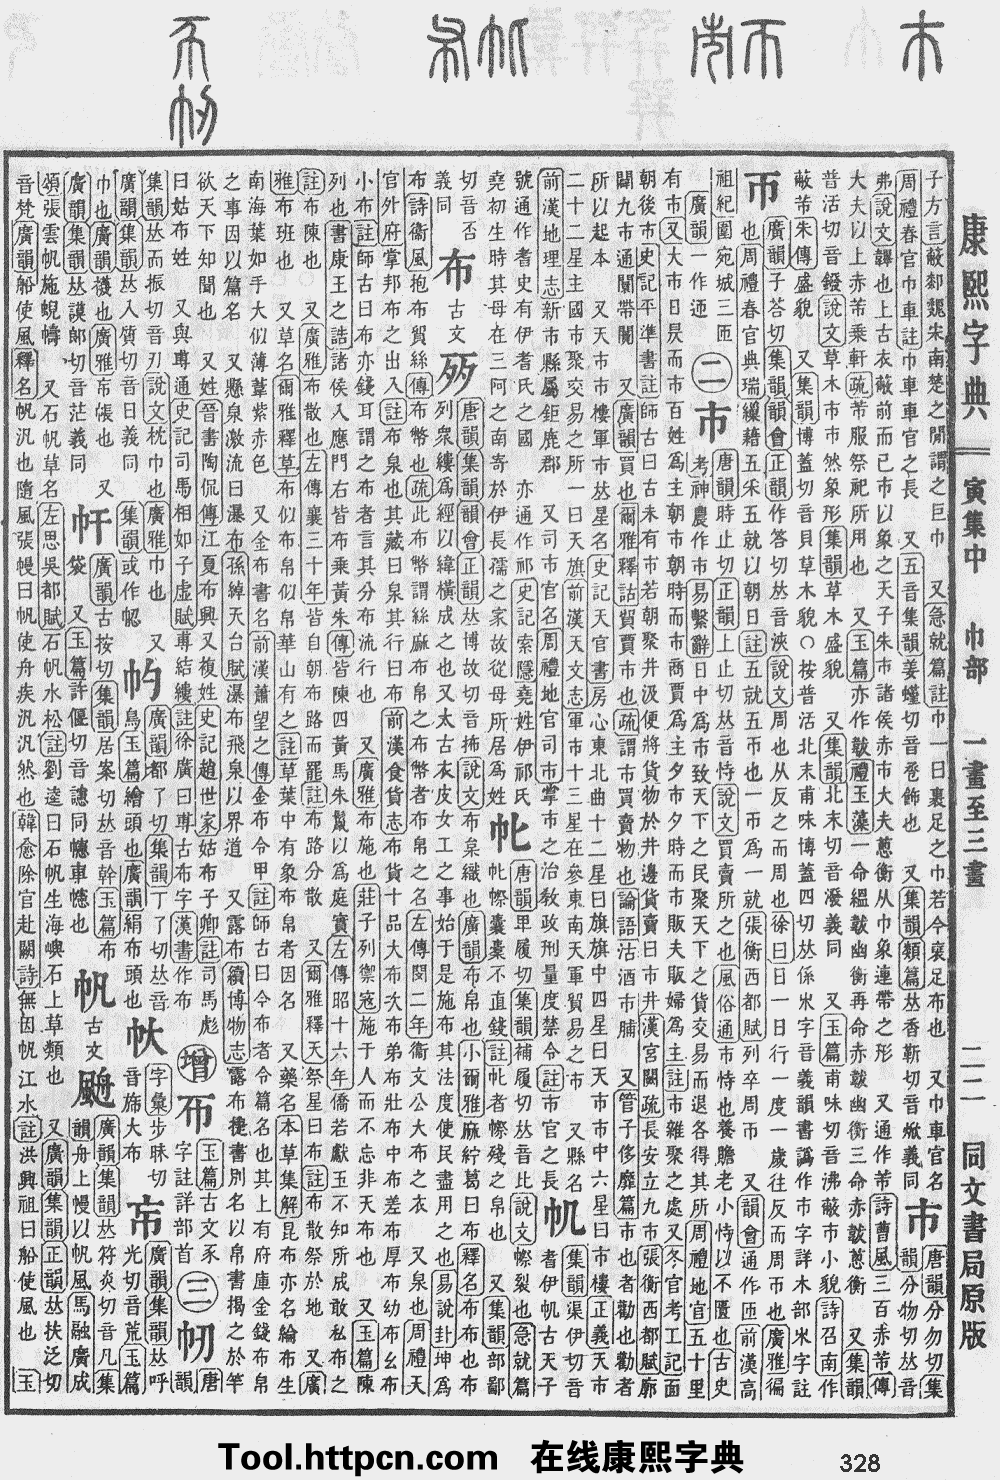 康熙字典 寅集中 巾部 一畫至三畫 二二 同文書局原版
子方言蔽䣛魏宋南楚之閒謂之巨巾 又急就篇註巾一曰裹足之巾若今裹足布也 又巾車官名 市 唐韻分勿切集
周禮春官巾車註巾車車官之長 又五音集韻姜切音卺飾也 又集韻類篇𠀤香靳切音焮義同 韻分物切𠀤音
弗說文韠也上古衣蔽前而已市以象之天子朱市諸侯赤市大夫蔥衡从巾象連帶之形 又通作芾詩曹風三百赤芾傳
大夫以上赤芾乘軒疏芾服祭祀所用也 又玉篇亦作韍禮玉藻一命縕韍幽衡再命赤韍幽衡三命赤韍蔥衡 又集韻
普活切音鏺說文草木市市然象形集韻草木盛貌 又集韻北末切音潑義同 又玉篇甫味切音沸蔽市小貌詩召南作
蔽芾朱傳盛貌 又集韻博蓋切音貝草木貌○按普活北末甫味博蓋四切𠀤係米字音義韻書譌作市字詳木部米字註
帀 廣韻子荅切集韻韻會正韻作答切𠀤音浹說文周也从反之而周也徐曰日一日行一度一歲往反而周帀也廣雅徧
也周禮春官典瑞繅藉五采五就以朝日註五就五帀也一帀爲一就張衡西都賦列卒周帀 又韻會通作匝前漢高
祖紀圍宛城三匝 二 市 唐韻時止切正韻上止切𠀤音恃說文買賣所之也風俗通市恃也養贍老小恃以不匱也古史
廣韻一作迊 考神農作市易繫辭日中爲市致天下之民聚天下之貨交易而退各得其所周禮地官五十里
有市又大市日昃而市百姓爲主朝市朝時而市商賈爲主夕市夕時而市販夫販婦爲主註市雜聚之處又冬官考工記面
朝後市史記平準書註師古曰古未有市若朝聚井汲便將貨物於井邊貨賣曰市井漢宮闕疏長安立九市張衡西都賦廓
開九市通闤帶闠 又廣韻買也爾雅釋詁貿賈市也疏謂市買賣物也論語沽酒市脯 又管子侈靡篇市也者勸也勸者
所以起本 又天市市樓軍市𠀤星名史記天官書房心東北曲十二星曰旗旗中四星曰天市市中六星曰市樓正義天市
二十二星主國市聚交易之所一曰天旗前漢天文志軍市十三星在參東南天軍貿易之市 又縣名 集韻渠伊切音
前漢地理志新市縣屬鉅鹿郡 又司市官名周禮地官司市掌市之治敎政刑量度禁令註市官之長 耆伊帆古天子
號通作耆史有伊耆氏之國 亦通作祁史記索隱堯姓伊祁氏 㠲 唐韻卑履切集韻補履切𠀤音比說文㡜裂也急就篇
堯初生時其母在三阿之南寄於伊長孺之家故從母所居爲姓 㠲㡜囊橐不直錢註㠲者㡜殘之帛也 又集韻部鄙
切音否 布 古文 唐韻集韻韻會正韻𠀤博故切音抪說文布枲織也廣韻布帛也小爾雅麻紵葛曰布釋名布布也布
義同 列衆縷爲經以緯橫成之也又太古衣皮女工之事始于是施布其法度使民盡用之也易說卦坤爲
布詩衞風抱布貿絲傳布幣也疏此布幣謂絲麻布帛之布幣者布帛之名左傳閔二年衞文公大布之衣 又泉也周禮天
官外府掌邦布之出入註布泉也其藏曰泉其行曰布前漢食貨志布貨十品大布次布弟布壯布中布差布厚布幼布幺布
小布註師古曰布亦錢耳謂之布者言其分布流行也 又廣雅布施也莊子列禦寇施于人而不忘非天布也 又玉篇陳
列也書康王之誥諸侯入應門右皆布乘黃朱傳皆陳四黃馬朱鬣以爲庭實左傳昭十六年僑若獻玉不知所成敢私布之
註布陳也○又廣雅布散也左傳襄三十年皆自朝布路而罷註布路分散 又爾雅釋天祭星曰布註布散祭於地 又廣
雅布班也 又草名爾雅釋草布似布帛似帛華山有之註草葉中有象布帛者因名 又藥名本草集解昆布亦名綸布生
南海葉如手大似薄葦紫赤色 又金布書名前漢蕭望之傳金布令甲註師古曰金布者令篇名也其上有府庫金錢布帛
之事因以篇名 又懸泉激流曰瀑布孫綽天台賦瀑布飛泉以界道 又露布續博物志露布捷書別名以帛書揭之於竿
欲天下知聞也 又姓晉書陶侃傳江夏布興又複姓史記趙世家姑布子卿註司馬彪 增 玉篇古文豕 三 㠴 唐
曰姑布姓 又與尃通史記司馬相如子虛賦尃結縷註徐廣曰尃古布字漢書作布 字註詳部首 韻
集韻𠀤而振切音刃說文枕巾也廣雅巾也 又 廣韻都了切集韻丁了切𠀤音 字彙步昧切 廣韻集韻𠀤呼
廣韻集韻𠀤人質切音日義同 集韻或作 鳥玉篇繒頭也廣韻絹布頭也 音旆大布 光切音荒玉篇
巾也廣韻幭也廣雅帍帳也 又 廣韻古按切集韻居案切𠀤音幹玉篇布 帆 古文 廣韻集韻𠀤符炎切音凡集
廣韻集韻𠀤謨郎切音茫義同 袋 又玉篇許偃切音幰同幰車幰也 韻舟上幔以帆風馬融廣成
頌張雲帆施蜺幬 又石帆草名左思吳都賦石帆水松註劉逵曰石帆生海嶼石上草類也 又廣韻集韻正韻𠀤扶泛切
音梵廣韻船使風釋名帆汎也隨風張幔曰帆使舟疾汎汎然也韓愈除官赴闕詩無因帆江水註洪興祖曰船使風也 玉
Tool.httpcn.com 在线康熙字典 328